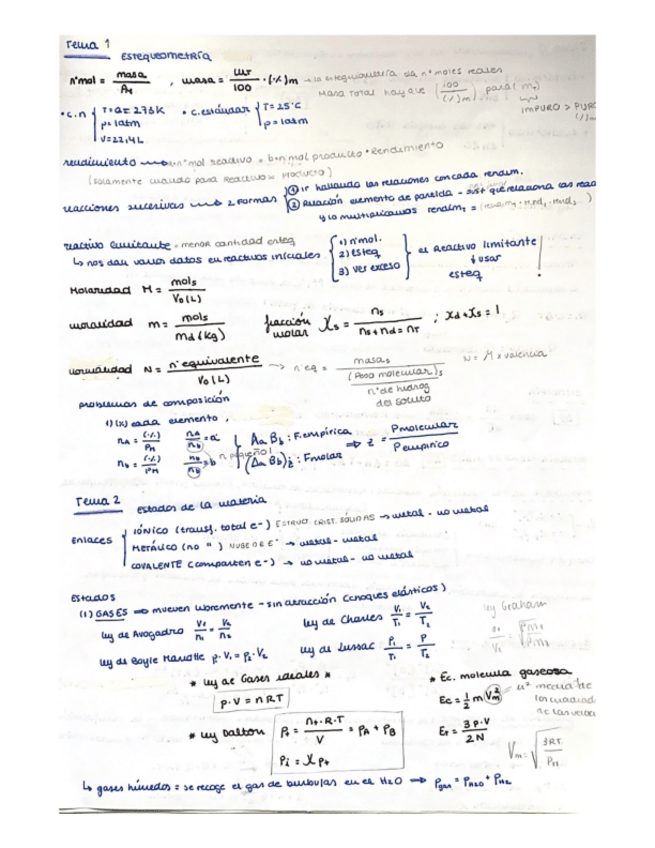 Tema 1
ESTEQUIOMETRÍA
nºmol = masa / PM , masa = mT / 100 · (%)m → la estequiometría da nº moles reales
Masa Total hay que (100 / (%)m) para( mT)
IMPURO > PURO
(%)m
• C.N { T=0º= 273K
p=1atm
V=22,4L
• C. estándar { T=25ºC
p=1atm
rendimiento → a·nºmol reactivo = b·n mol producto · Rendimiento
(solamente cuando pasa Reactivo = producto)
reacciones sucesivas → 2 formas { ① ir hallando las relaciones con cada rendim.
② Relación elemento de partida - sust que relaciona las reac
y lo multiplicamos rendimT = (rendim1 · rend2 · rend3 )
reactivo limitante = menor cantidad esteq
↳ nos dan varios datos en reactivos iniciales { 1) nºmol.
2) esteq
3) ver exceso } el Reactivo limitante
↓ usar
esteq !
Molaridad M = mols / Vo(L)
molalidad m = mols / md(kg)
fracción molar Xs = ns / ns+nd=nT ; Xd+Xs=1
normalidad N = nº equivalente / Vo(L) → nºeq = masas / (Peso molecular)s / nº de hidrog del soluto
N = M x valencia
problemas de composición
1) (%) cada elemento.
nA = (%) / PM nA / nb = a
nb = (%) / PM nb / nb = b
n pequeño!
{ Aa Bb : F. empírica
(Aa Bb)z : F molar ⇒ z = Pmolecular / Pempírico
Tema 2
estados de la materia
Enlaces { IÓNICO (transf. total e-) ESTRUC. CRIST. SÓLIDAS → metal - no metal
METÁLICO (no " ) NUBE DE E- → metal - metal
COVALENTE (comparten e-) → no metal - no metal
Estados
(1) GASES ⇒ mueven libremente - sin atracción (choques elásticos)
ley de Avogadro V1/n1 = V2/n2
ley de Charles V1/T1 = V2/T2
ley Graham
ley de Boyle Mariotte p1·V1 = p2·V2
ley de Lussac P1/T1 = P/T2
* ley de Gases ideales *
p·V = nRT
* Ec. molecula gaseosa
Ec = 1/2 m Vm² → u² media de
los cuadrad
de las veloc
ET = 3P·V / 2N
Vm = √ 3RT / PM
* ley Dalton
Pt = nt·R·T / V = PA + PB
Pi = X Pt
↳ gases húmedos = se recoge el gas de burbujas en el H2O ⇒ Pgas = PH2O + PH2